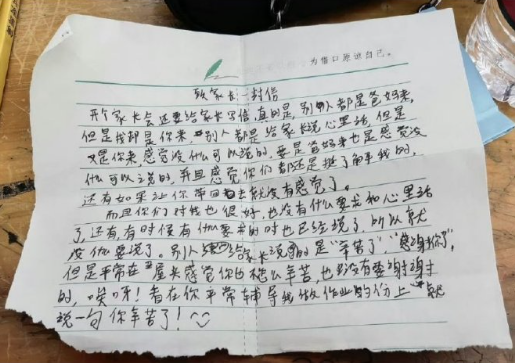 为借口原谅自己。
致家长一封信
开个家长会还要给家长写信,真的是,别人都是爸妈来,
但是我却是你来,别人都是给家长说心里话,但是
又是你来感觉没什么可以说的,要是爸妈来也是感觉没
什么可以说的,并且感觉你们都还是挺了解我的,
还有如果让你带回去就没有感觉了。
而且你们对我也很好,也没有什么要说的心里话
了,还有,有时候有什么要求的时也已经说了,所以就
没什么要说了。别人给家长说的是“辛苦了”,“感谢你”,
但是平常在家长感觉你也没什么辛苦,也没有要谢谢
的,唉呀!看在你平常辅导我做作业的份上就
说一句你辛苦了!